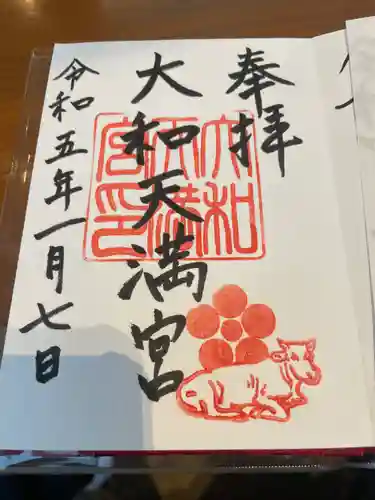 奉拝
大和天満宮
令和五年一月七日
大和天満宮印